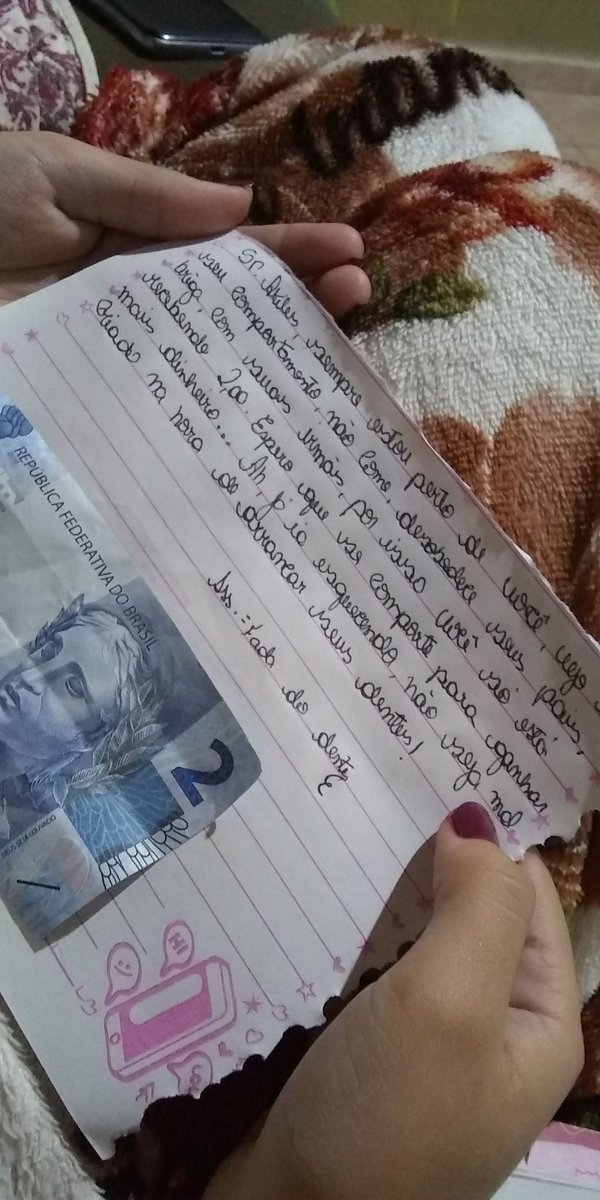 Sr. Arales, sempre estou perto de você, vejo o
seu comportamento, não come, desobedece seus pais,
briga com suas irmãs, por isso você só está
recebendo 2,00. Espero que se comporte para ganhar
mais dinheiro... Ah, já ia esquecendo, não seja mal
criado na hora de arrancar seus dentes!
Ass.: Fada do dente
REPÚBLICA FEDERATIVA DO BRASIL
2
DEUS SEJA LOUVADO
HI